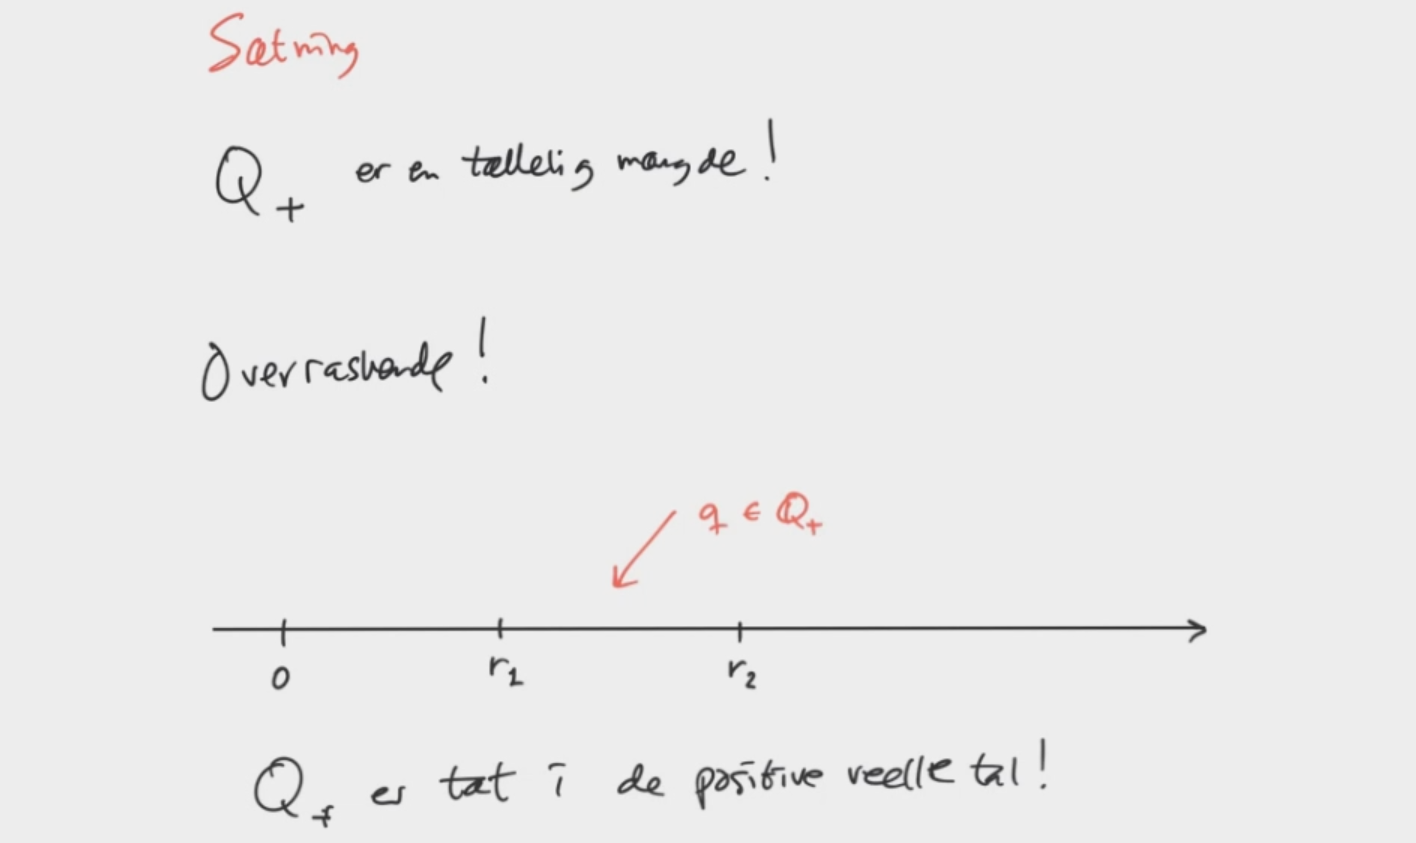 Sætning
Q₊ er en tællelig mængde!
Overraskende!
q ∈ Q₊
0 r₁ r₂
Q₊ er tæt i de positive reelle tal!